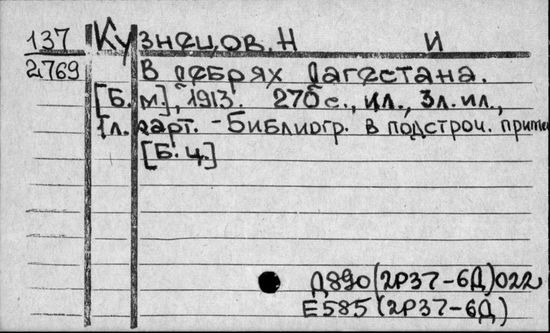 137 Кузнецов. Н И
2769 В дебрях Дагестана.
[Б. м.], 1913. 276 с., ил., 3л. ил.,
1л. карт. - Библиогр. в подстроч. приме
[Б. ц.]
Д890(2Р37-6Д)022
Е585(2Р37-6Д)